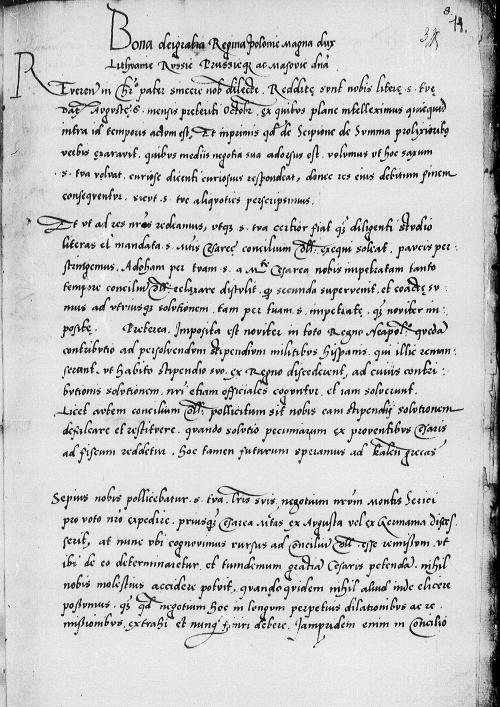 14.
Bona dei gratia Regina polonie magna dux
Lithvanie Russie Prussieque ac Masovie dna
Reveren in Chro pater sincere nob dilecte. Reddite sunt nobis litere s. tve
date Avguste s. mensis preteriti Octobr. ex quibus plane intelleximus quicquid
intra id temporis actum est, Et inprimis qd de Scipione de Summa prolixioribus
verbis exaravit. quibus mediis negotia sua adorsus est. volumus ut hoc saxum
. s. tva volvat. curiose dicenti curiosus respondeat, donec res eius debitum finem
consequentur. sicut. s. tve aliquoties perscripsimus.
Et ut ad res nras redeamus, utque s. tva certior fiat quam diligenti studio
literas et mandata s. Mtis Cesaree concilium Coll. exequi soleat. paucis per:
stringemus. Adoham per tuam. s. a Mte Cesarea nobis impetratam tanto
tempore conciliu Coll. relaxare distulit. qd secunda supervenit, et coacte su:
mus ad utriusque solutionem. tam per tuam s. impetrate, quam noviter im:
posite. Preterea. Imposita est noviter in toto Regno Neapol. queda
contributio ad persolvendum stipendium militibus hispanis. qui illic reman:
serant. ut habito stipendio suo. ex Regno discederent, ad cuius contri:
butionis solutionem. nri etiam officiales coguntur. et iam solverunt.
Licet autem concilium Coll. pollicitum sit nobis eam stipendij solutionem
defalcare et restituere. quando solutio pecuniarum ex proventibus Cesaris
ad fiscum reddetur. hoc tamen futurum speramus ad kalen grecas
Sepius nobis pollicebatur. s. tva. lris suis. negotium nrum Montis Serici
pro voto nro expedire. priusquam Cesarea Mtas ex Augusta vel ex Germania disces
serit, at nunc ubi cognovimus rursus ad Conciliu Coll. esse remissum. ut
ibi de eo determinaretur. et tandemum gratia Cesaris petenda. nihil
nobis molestius accidere potuit, quandoquidem nihil aliud inde elicere
possumus. quam qd negotium hoc in longum perpetuis dilationibus ac re:
missionibus extrahi et nunquam finiri debere. Iampridem enim in Concilio